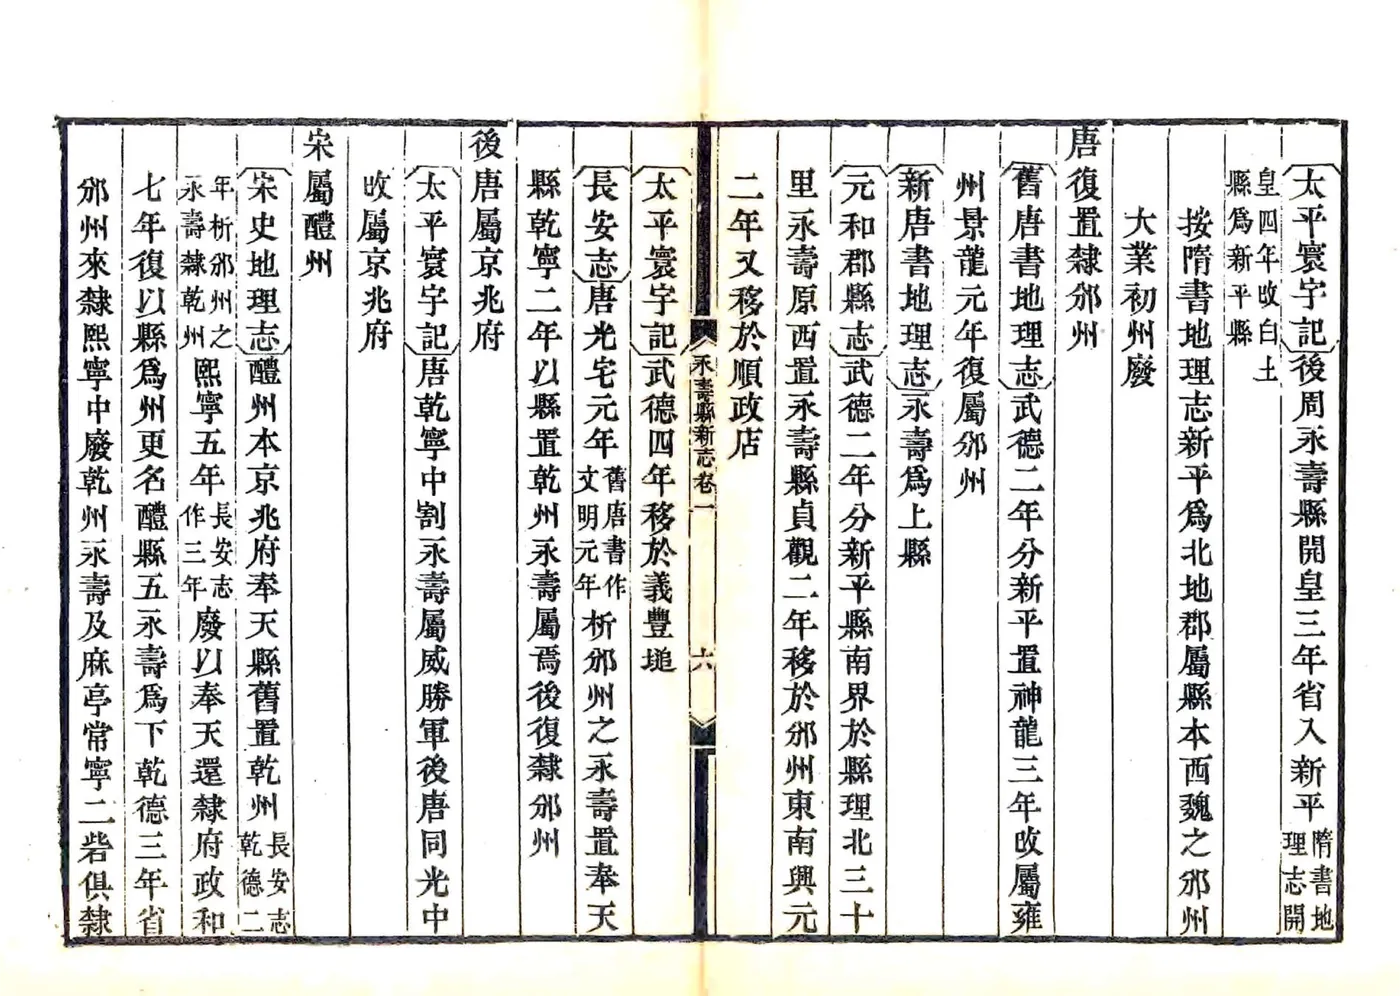 太平寰宇記後周永壽縣開皇三年省入新平隋書地理志開
皇四年改白土縣爲新平縣
按隋書地理志新平爲北地郡屬縣本西魏之邠州
大業初州廢
唐復置隸邠州
舊唐書地理志武德二年分新平置神龍三年改屬雍
州景龍元年復屬邠州
新唐書地理志永壽爲上縣
元和郡縣志武德二年分新平縣南界於縣理北三十
里永壽原西置永壽縣貞觀二年移於邠州東南興元
二年又移於順政店
永壽縣新志卷一 六
太平寰宇記武德四年移於義豐塠
長安志唐光宅元年舊唐書作文明元年析邠州之永壽置奉天
縣乾寧二年以縣置乾州永壽屬焉後復隸邠州
後唐屬京兆府
太平寰宇記唐乾寧中割永壽屬威勝軍後唐同光中
改屬京兆府
宋屬醴州
宋史地理志醴州本京兆府奉天縣舊置乾州長安志乾德二
年析邠州之永壽隸乾州熙寧五年長安志作三年廢以奉天還隸府政和
七年復以縣爲州更名醴縣五永壽爲下乾德三年省
邠州來隸熙寧中廢乾州永壽及麻亭常寧二砦俱隸